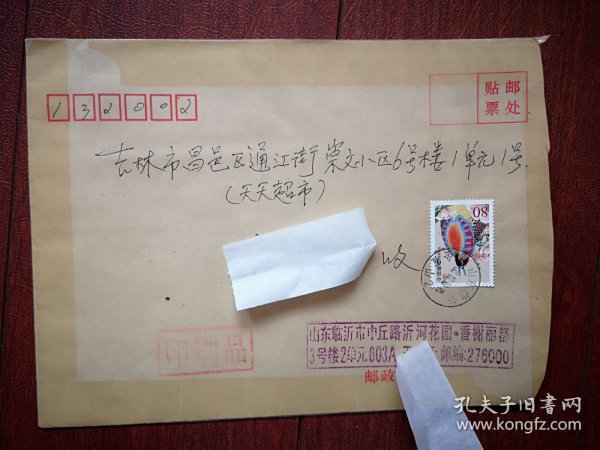 132002
贴邮
票处
吉林市昌邑区通江街崇文小区6号楼1单元1号
(天天超市)
80
收
印刷品
山东临沂市中丘路沂河花园·香榭丽都
3号楼2单元603A
邮编:276000
邮政
孔夫子旧书网
www.kongfz.com